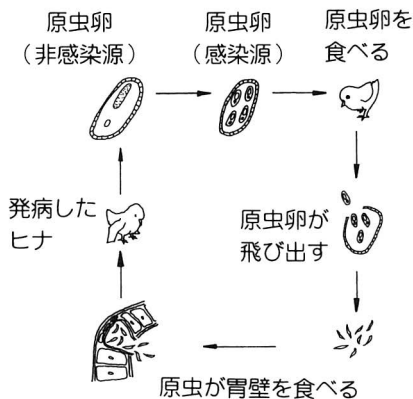 原虫卵
（非感染源）
原虫卵
（感染源）
原虫卵を
食べる
原虫卵が
飛び出す
原虫が胃壁を食べる
発病した
ヒナ